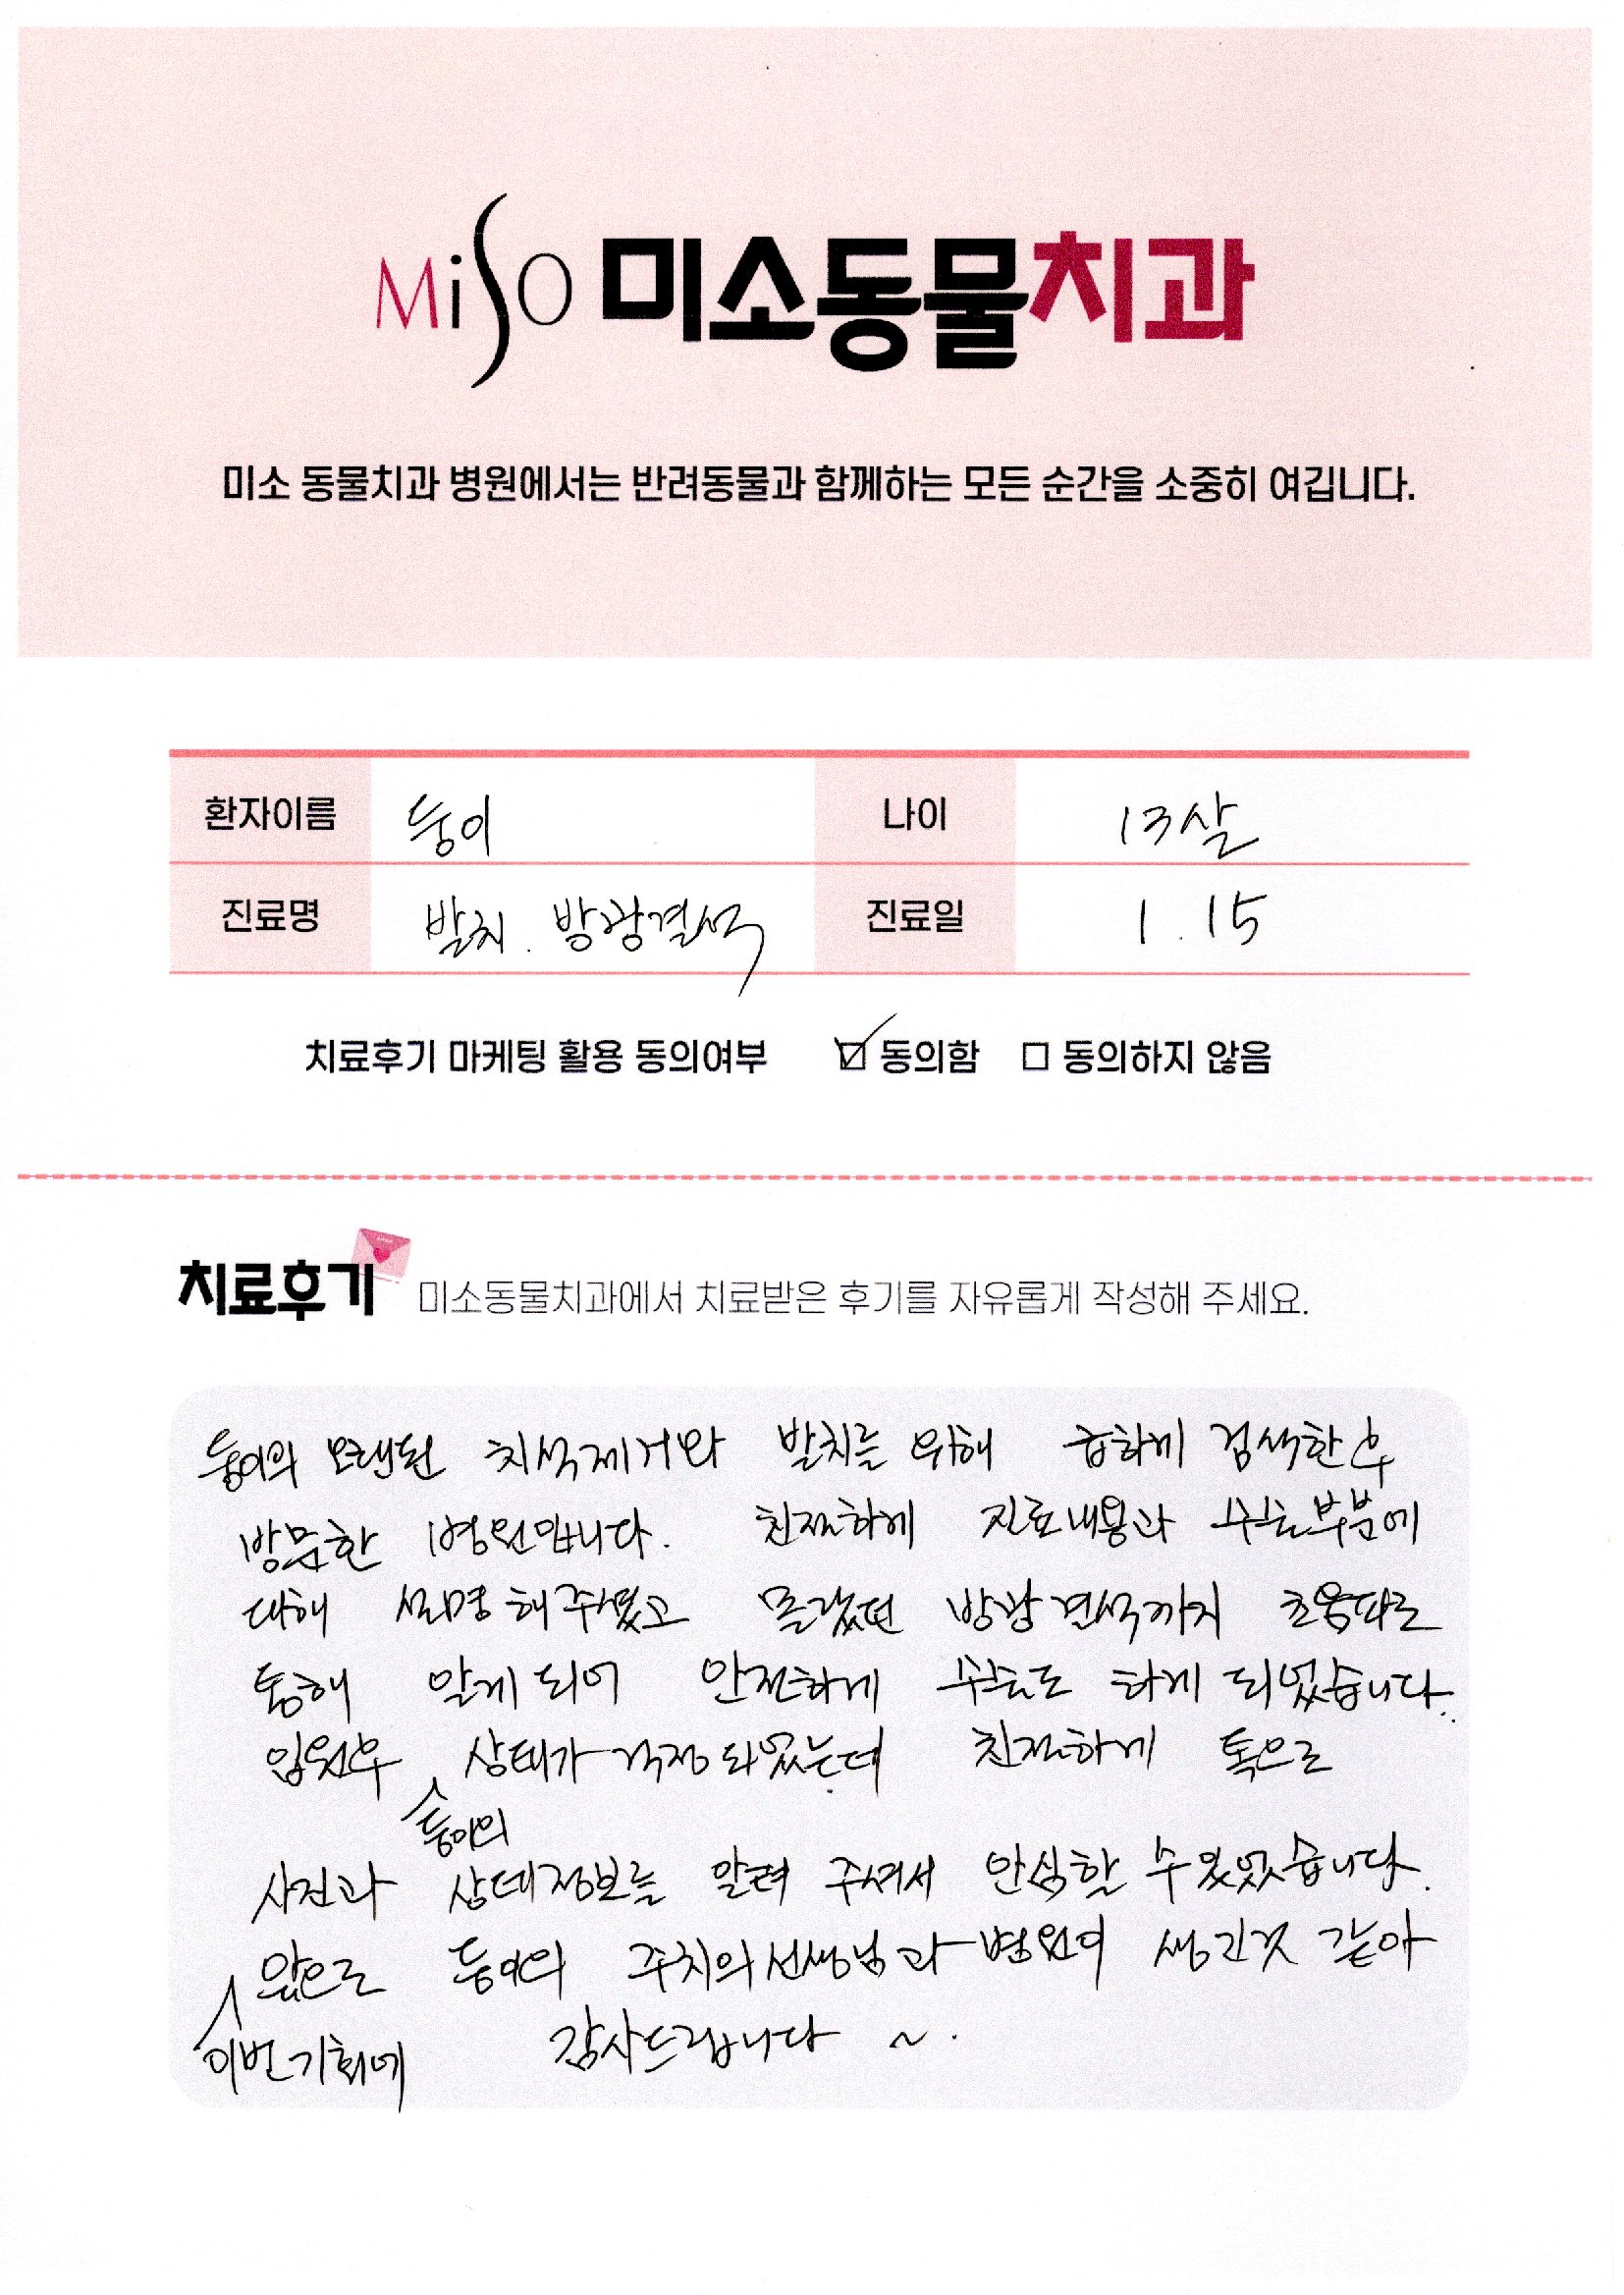 MiSO 미소동물치과
미소 동물치과 병원에서는 반려동물과 함께하는 모든 순간을 소중히 여깁니다.
환자이름 둥이 나이 13살
진료명 발치. 방광결석 진료일 1. 15
치료후기 마케팅 활용 동의여부 ☑ 동의함 □ 동의하지 않음
치료후기 미소동물치과에서 치료받은 후기를 자유롭게 작성해 주세요.
둥이의 오래된 치석제거와 발치를 위해 급하게 검색한 후
방문한 병원입니다. 친절하게 진료내용과 수술부분에
대해 설명해주셨고 몰랐던 방광결석까지 초음파로
통해 알게 되어 안전하게 수술도 하게 되었습니다.
입원후 상태가 걱정되었는데 친절하게 톡으로
둥이의
사진과 상태정보를 알려 주셔서 안심할 수 있었습니다.
앞으로 둥이의 주치의 선생님과 병원이 생긴것 같아
이번기회에 감사드립니다 ~.